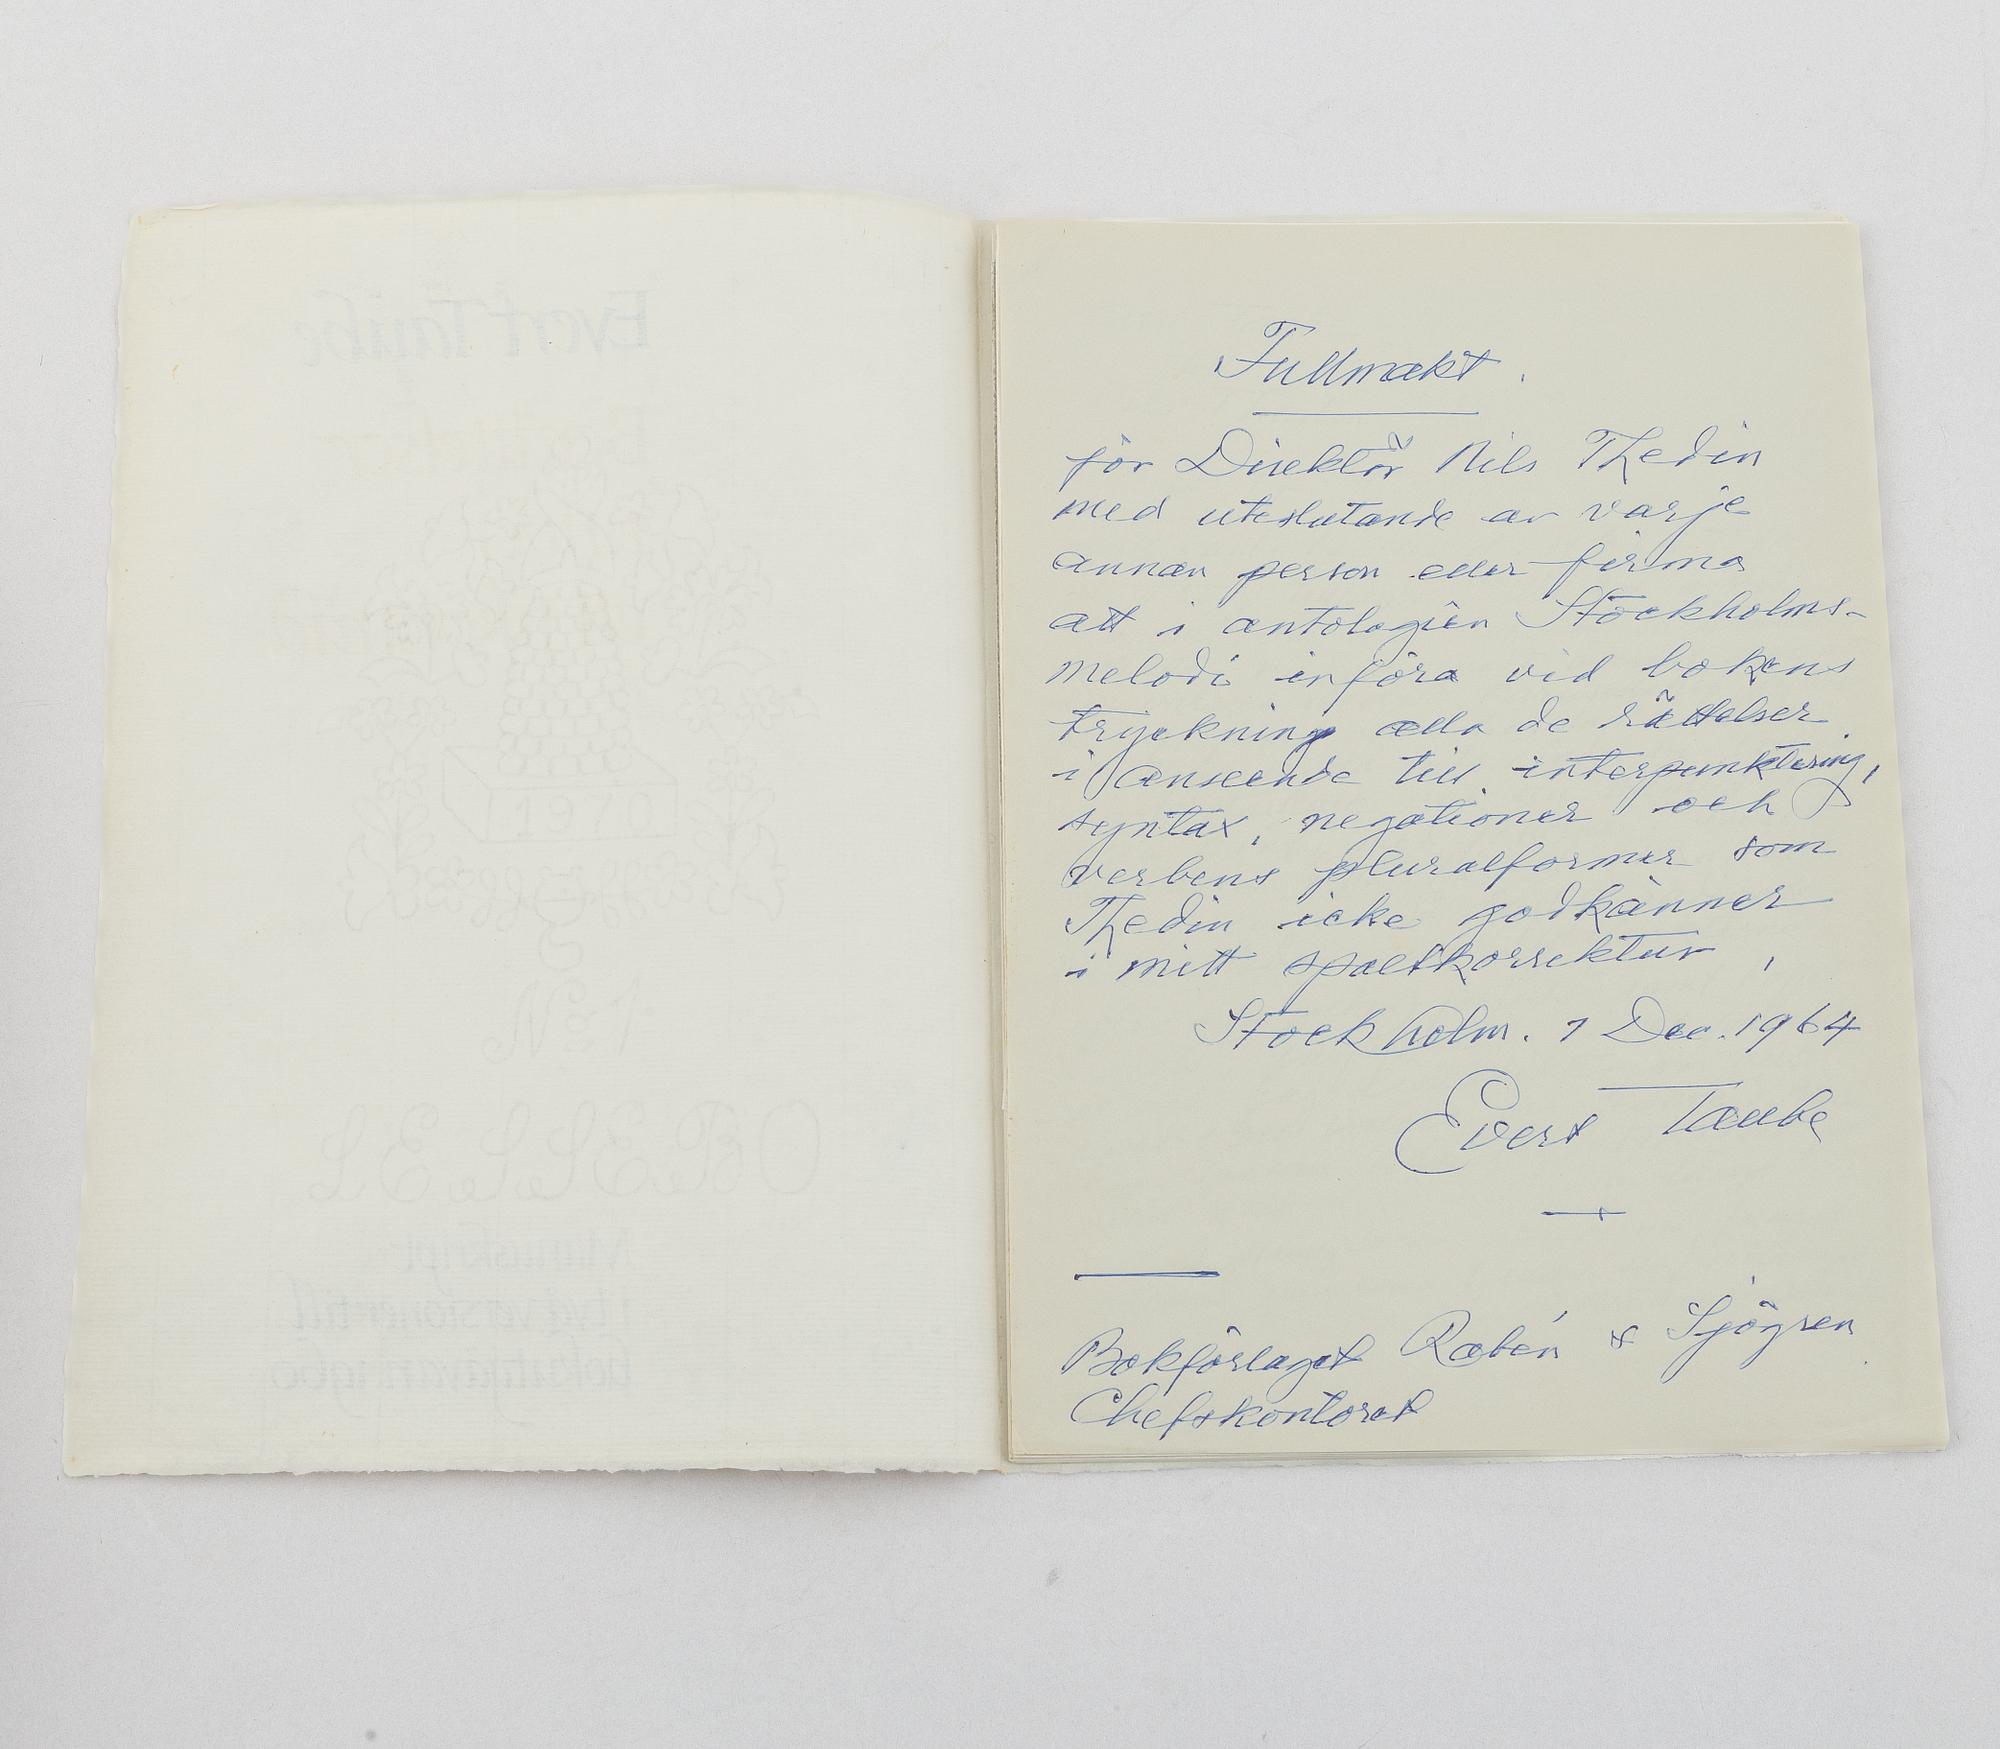 Evert Taube
1970
Manuskript
Fullmakt.
för Direktör Nils Thedin
med uteslutande av varje
annan person eller firma
att i antologien Stockholms-
melodi införa vid bokens
tryckning alla de rättelser
i anseende till interpunktering,
syntax, negationer och
verbens pluralformer som
Thedin icke godkänner
i mitt spaltkorrektur,
Stockholm. 7 Dec. 1964
Evert Taube
Bokförlaget Rabén & Sjögren
Chefskontoret